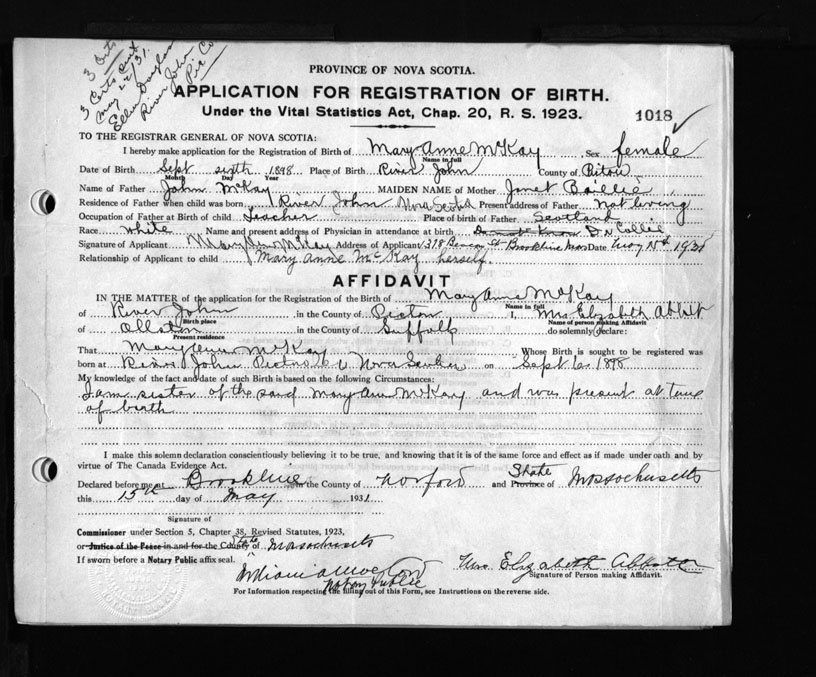 3 Certs
3 Certs sent
May 22/31.
Ellen Douglas
River John
Pic Co
PROVINCE OF NOVA SCOTIA.
APPLICATION FOR REGISTRATION OF BIRTH.
Under the Vital Statistics Act, Chap. 20, R. S. 1923.
1018
TO THE REGISTRAR GENERAL OF NOVA SCOTIA:
I hereby make application for the Registration of Birth of Mary Anne McKay Sex female
Name in full
Date of Birth Sept sixth 1898 Place of Birth River John County of Pictou
Month Day Year
Name of Father John McKay MAIDEN NAME of Mother Janet Baillie
Residence of Father when child was born River John Nova Scotia Present address of Father Not living
Occupation of Father at Birth of child Teacher Place of birth of Father Scotland
Race White Name and present address of Physician in attendance at birth Do not know Dr Collie
Signature of Applicant Mary Ann McKay Address of Applicant 378 Beacon St Brookline Mass Date May 15th 1931
Relationship of Applicant to child Mary Anne McKay herself.
AFFIDAVIT
IN THE MATTER of the application for the Registration of the Birth of Mary Anne McKay
Name in full
of River John in the County of Pictou I, Mrs Elizabeth Abbott
Birth place Name of person making Affidavit
of Allston in the County of Suffolk do solemnly declare:
Present residence
That Mary Ann McKay Whose Birth is sought to be registered was
born at River John Pictou Nova Scotia on Sept 6 1898
My knowledge of the fact and date of such Birth is based on the following Circumstances:
I am sister of the said Mary Ann McKay and was present at time
of birth
I make this solemn declaration conscientiously believing it to be true, and knowing that it is of the same force and effect as if made under oath and by
virtue of The Canada Evidence Act.
Declared before me at Brookline in the County of Norfolk and State Province of Massachusetts
this 15th day of May 1931
Signature of
Commissioner under Section 5, Chapter 38, Revised Statutes, 1923,
or Justice of the Peace in and for the County State of Massachusetts
If sworn before a Notary Public affix seal.
Mrs. Elizabeth Abbott
Signature of Person making Affidavit.
Notary Public
For Information respecting the filling out of this Form, see Instructions on the reverse side.